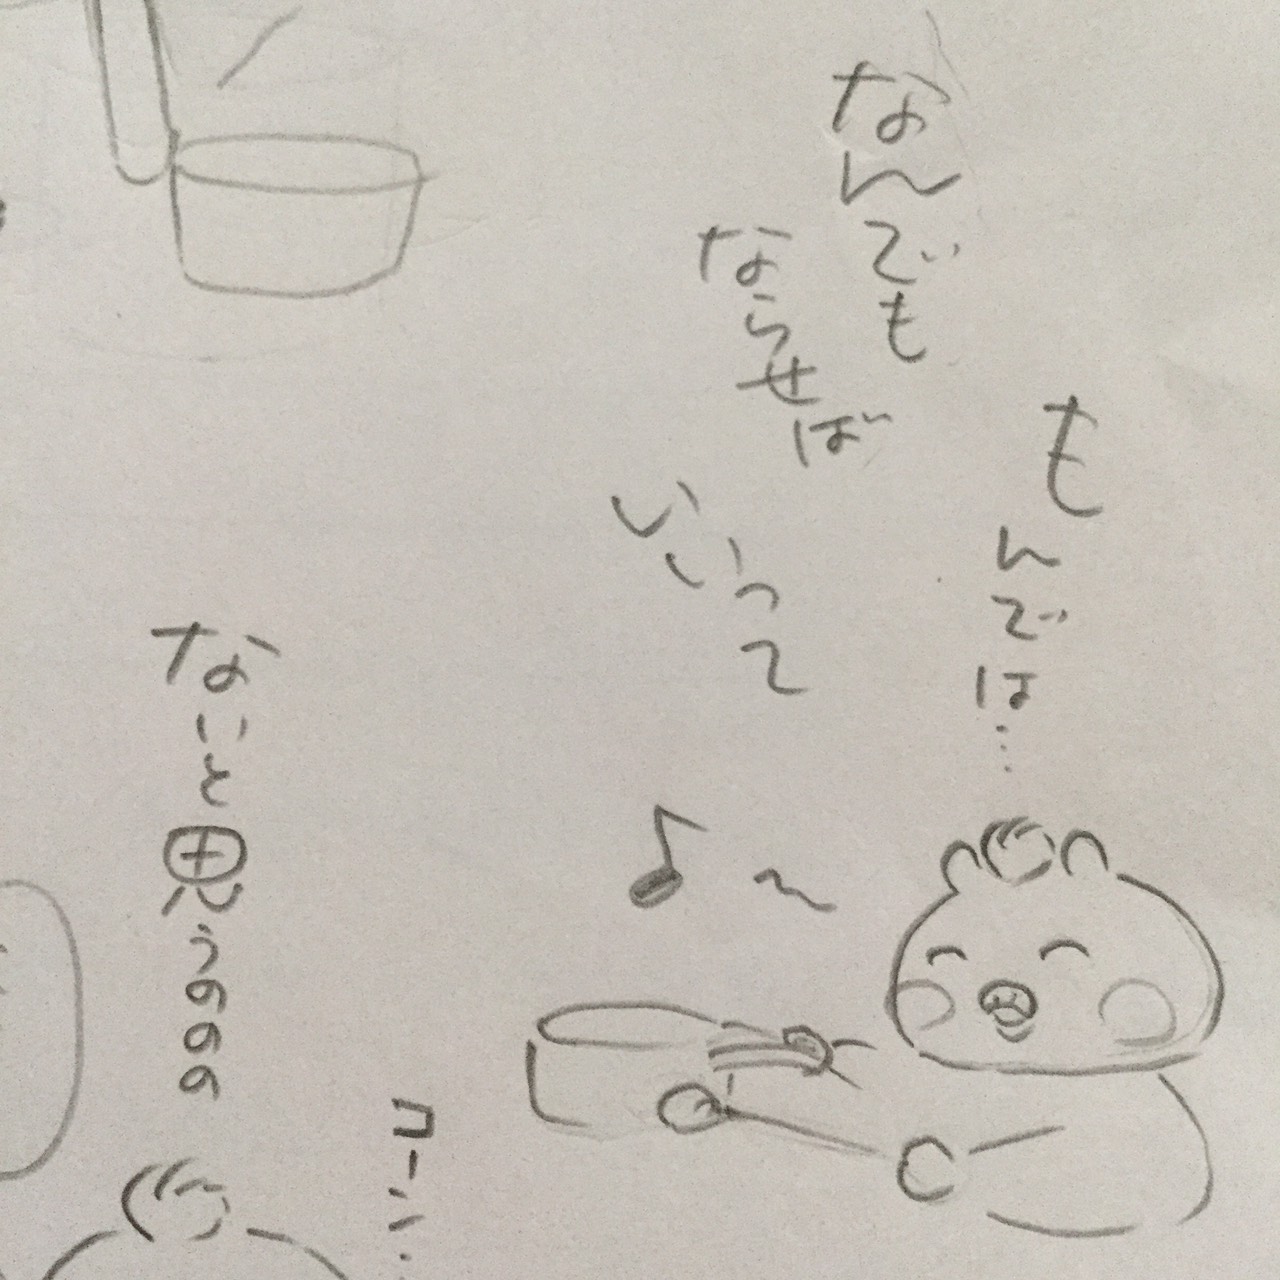 なんでも
ならせば
いいって
もんでは…
なにと思うののの
コーン…